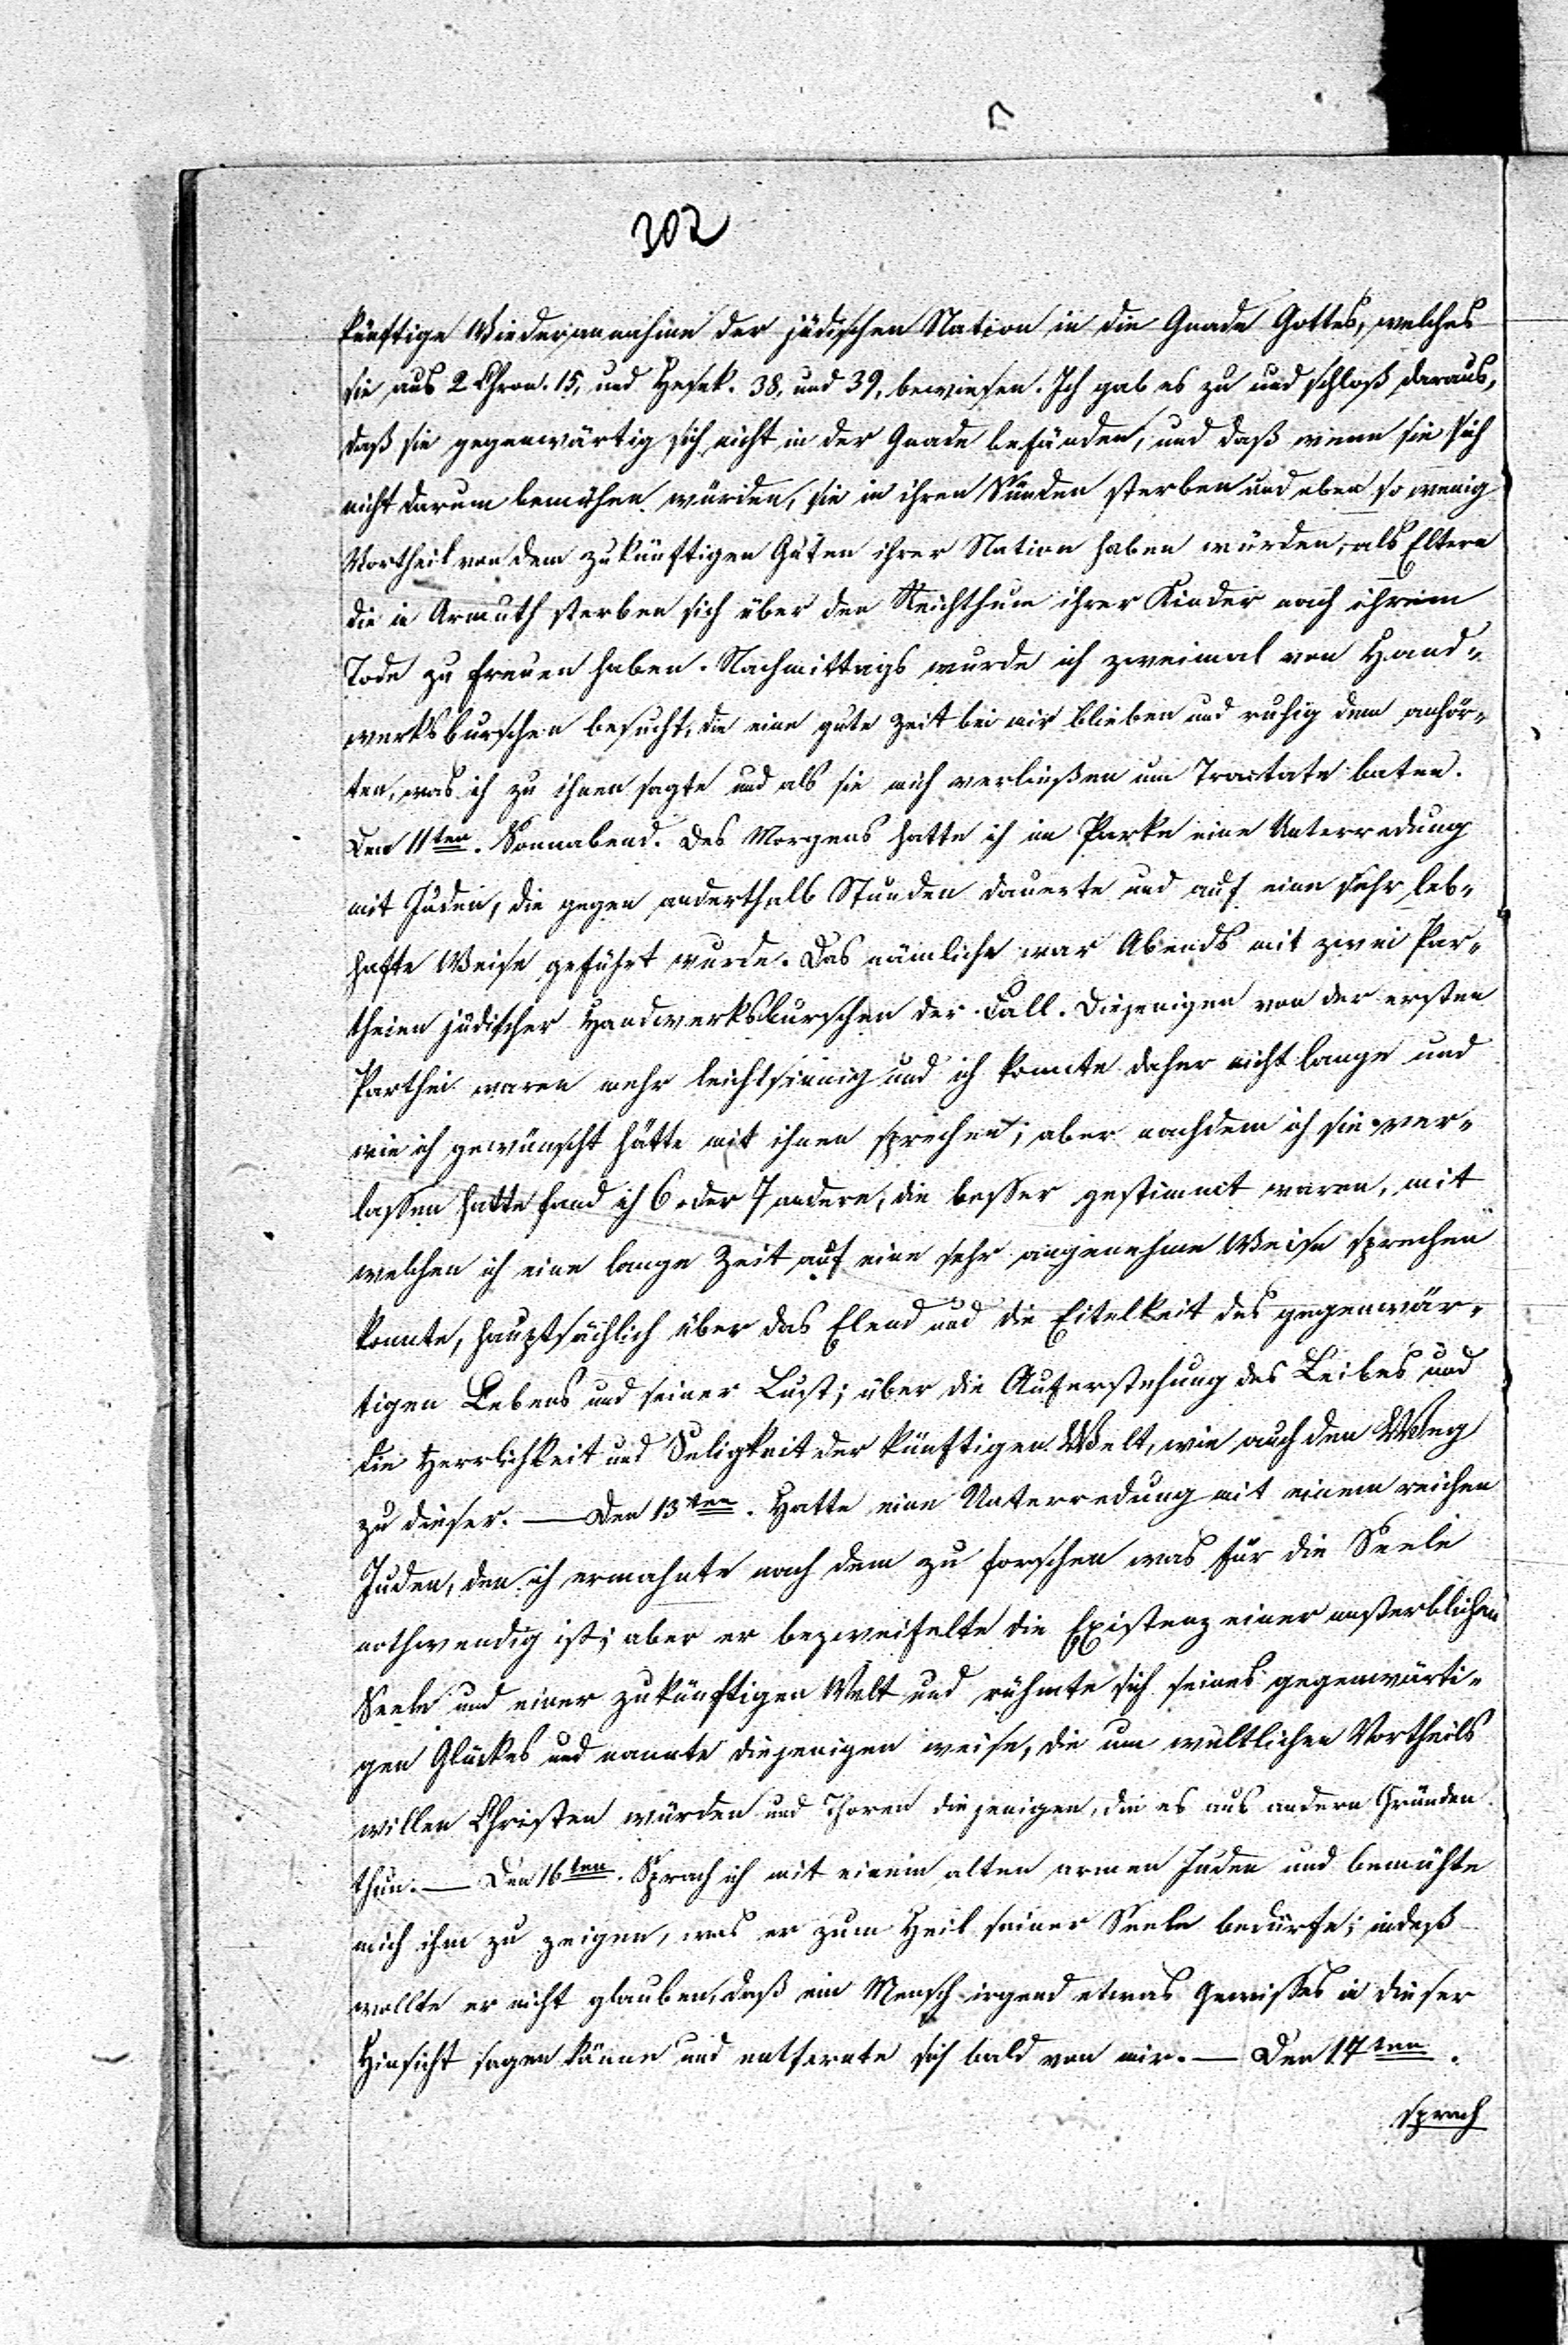 302
künftige Wiederannahme der jüdischen Nation in die Gnade Gottes, welches
sie aus 2 Chron. 15, und Hesek. 38, und 39, bewiesen. Ich gab es zu und schloß daraus,
daß sie gegenwärtig sich nicht in der Gnade befänden, und daß wenn sie sich
nicht darum bemühen würden, sie in ihren Sünden sterben und eben so wenig
Vortheil von dem zukünftigen Guten ihrer Nation haben würden, als Eltern
die in Armuth sterben sich über den Reichthum ihrer Kinder nach ihrem
Tode zu freuen haben. Nachmittags wurde ich zweimal von Hand-
werksburschen besucht, die eine gute Zeit bei mir blieben und ruhig dem anhör-
ten, was ich zu ihnen sagte und als sie mich verließen um Tractate baten.
Den 11ten. Sonnabend. Des Morgens hatte ich im Parke eine Unterredung
mit Juden, die gegen anderthalb Stunden dauerte und auf eine sehr leb-
hafte Weise geführt wurde. Das nämliche war Abends mit zwei Par-
theien jüdischer Handwerksburschen der Fall. Diejenigen von der ersten
Parthei waren mehr leichtsinnig und ich konnte daher nicht lange und
wie ich gewünscht hätte mit ihnen sprechen; aber nachdem ich sie ver-
lassen hatte fand ich 6 oder 7 andere, die besser gestimmt waren, mit
welchen ich eine lange Zeit auf eine sehr angenehme Weise sprechen
konnte, hauptsächlich über das Elend und die Eitelkeit des gegenwär-
tigen Lebens und seiner Lust; über die Auferstehung des Leibes und
die Herrlichkeit und Seligkeit der künftigen Welt, wie auch den Weg
zu dieser. — Den 13ten. Hatte eine Unterredung mit einem reichen
Juden, den ich ermahnte nach dem zu forschen was für die Seele
nothwendig ist; aber er bezweifelte die Existenz einer unsterblichen
Seele und einer zukünftigen Welt und rühmte sich seines gegenwärti-
gen Glückes und nannte diejenigen weise, die um weltlichen Vortheils
willen Christen würden und Thoren diejenigen, die es aus andern Gründen
thun. — Den 16ten. Sprach ich mit einem alten armen Juden und bemühte
mich ihm zu zeigen, was er zum Heil seiner Seele bedürfe; indeß
wollte er nicht glauben, daß ein Mensch irgend etwas Gewisses in dieser
Hinsicht sagen könne und entfernte sich bald von mir. — Den 17ten.
sprach